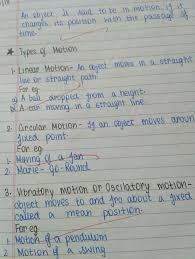 An object is said to be in motion if it
changes its position with the passage of
time.
★ Types of Motion
1. Linear Motion- An object moves in a straight
line or straight path.
For eg.
a) A ball dropped from a height.
b) A car moving in a straight line.
2. Circular Motion - If an object moves around
fixed point.
For eg.
1. Moving of a fan
2. Marie-Go-Round
3. Vibratory motion or Oscilatory motion-
object moves to and fro about a fixed
called a mean position.
For eg.
1. Motion of a pendulum
2. Motion of a swing